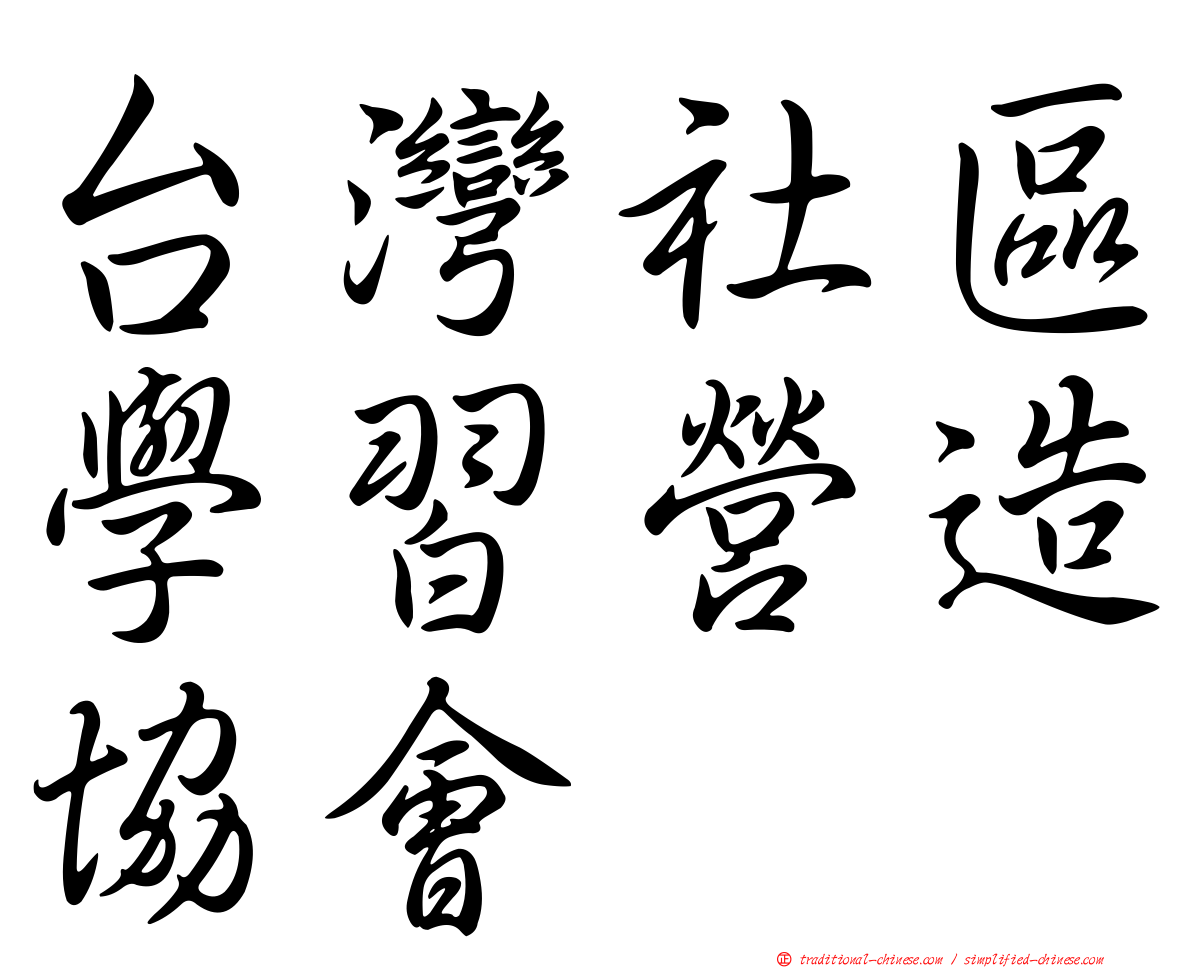 台灣社區
學習營造
協會
正 traditional-chinese.com / simplified-chinese.com